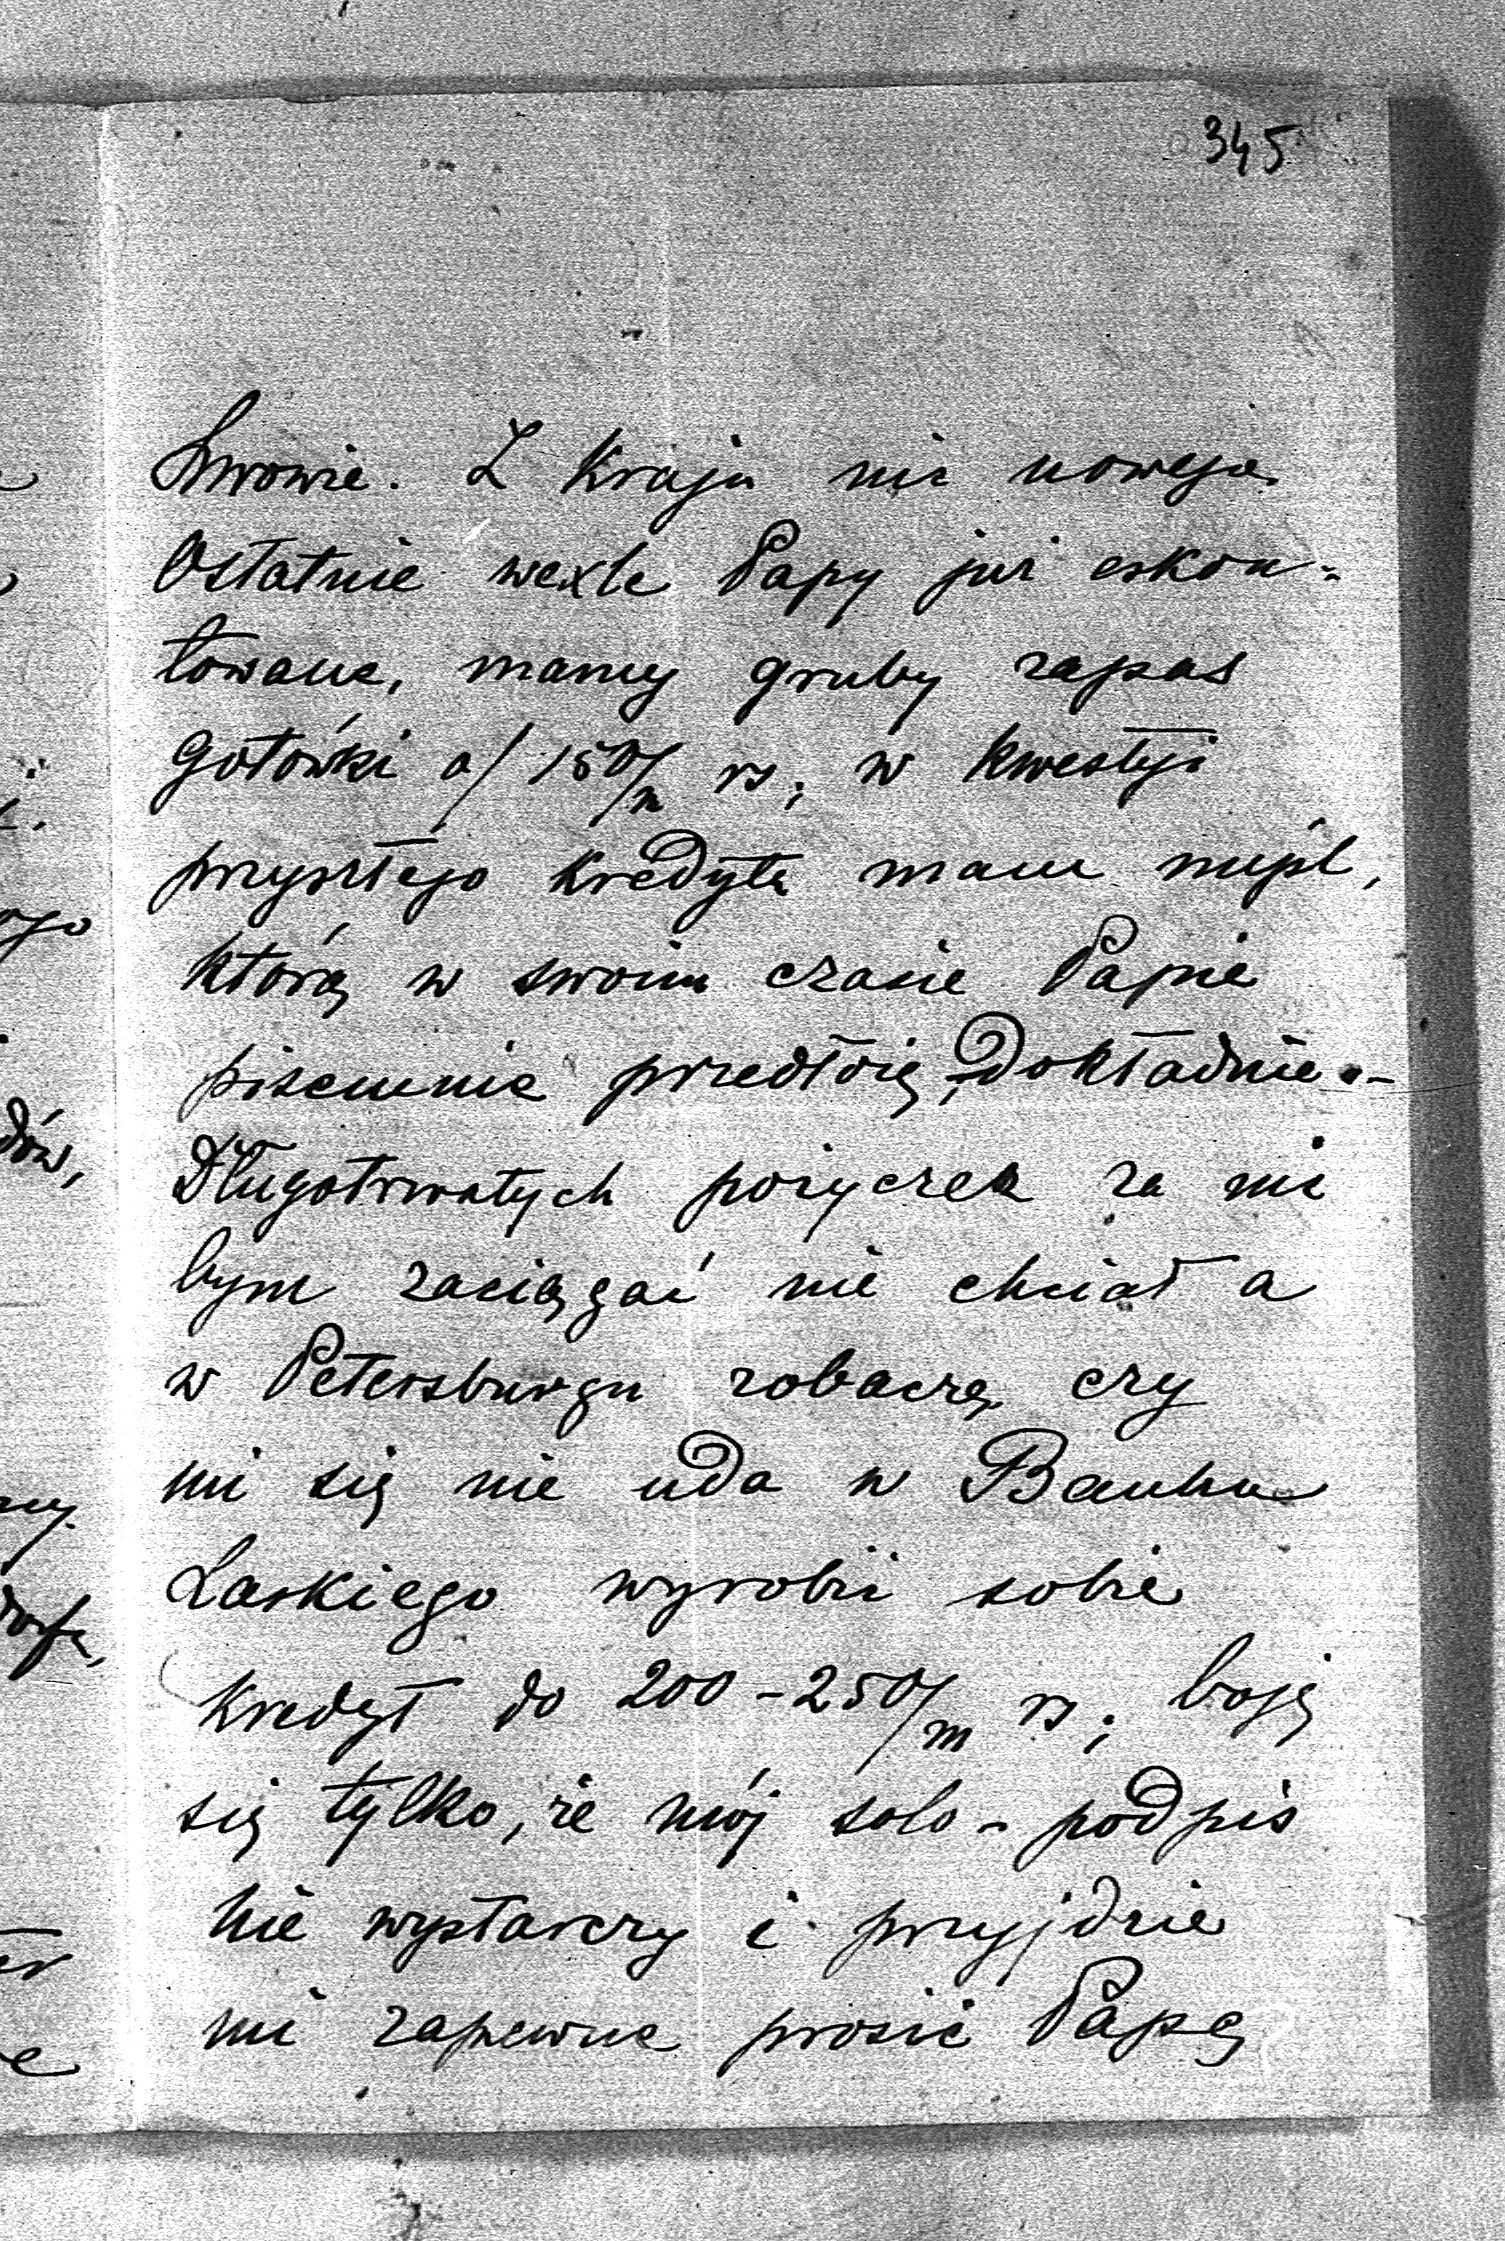 345
Lwowie. Z Kraju nic nowego.
Ostatnie wexle Papy już eskon-
towane, mamy gruby zapas
gotówki a/ 150/m rs; w kwestyi
przyszłego kredytu mam myśl,
którą w swoim czasie Papie
pisemnie przedłożę, dokładnie.-
Długotrwałych pożyczek za nic
bym zaciągać nie chciał a
w Petersburgu zobaczę, czy
mi się nie uda w Banku
Laskiego wyrobić sobie
kredyt do 200-250/m rs; boję
się tylko, że mój solo-podpis
nie wystarczy i przyjdzie
mi zapewne prosić Papę